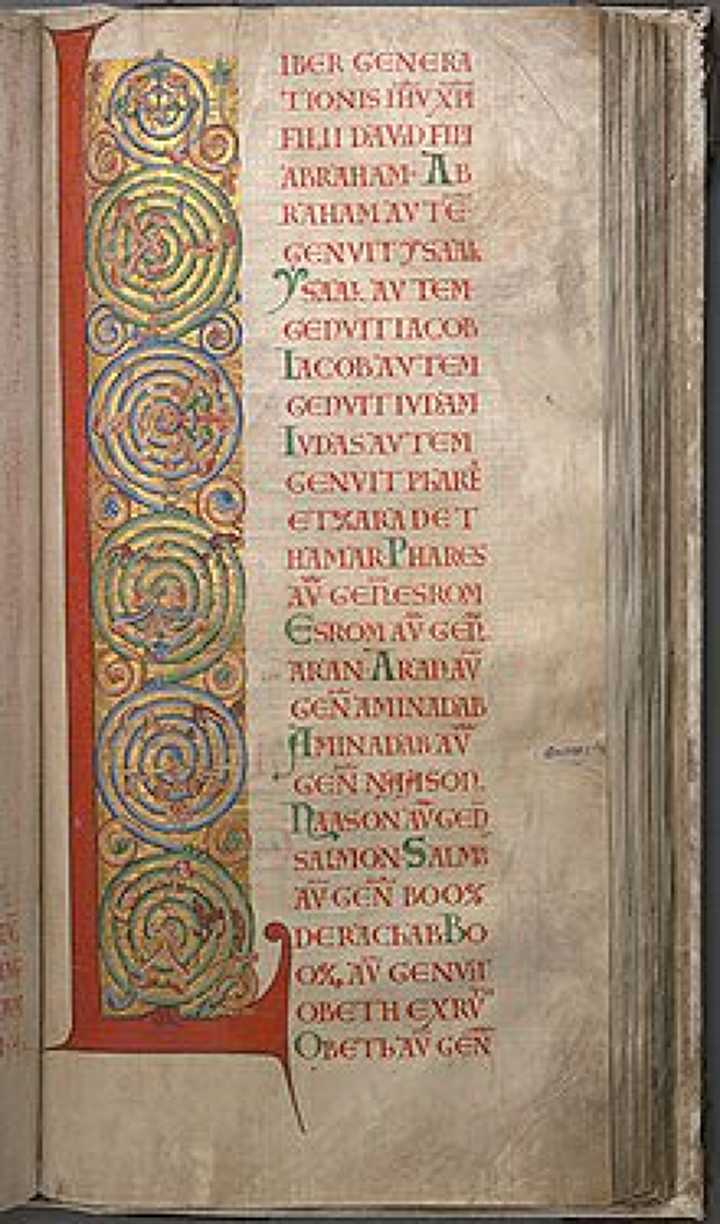 L
IBER GENERA
TIONIS IHV XPI
FILII DAVID FILII
ABRAHAM· AB
RAHAM AVTE
GENVIT YSAAK
YSAAK AVTEM
GENVIT IACOB
IACOB AVTEM
GENVIT IVDAM
IVDAS AVTEM
GENVIT PHARE
ET ZARA DE T
HAMAR PHARES
AV̅ GEN̅ ESROM
ESROM AV̅ GEN̅
ARAN· ARAN AV̅
GEN̅ AMINADAB
AMINADAB AV̅
GEN̅ NAASON
NAASON AV̅ GEN̅
SALMON· SALMN
AV̅ GEN̅ BOOZ
DE RACHAB BO
OZ AV̅ GENVIT
OBETH EX RV̅
OBETH AV̅ GEN̅